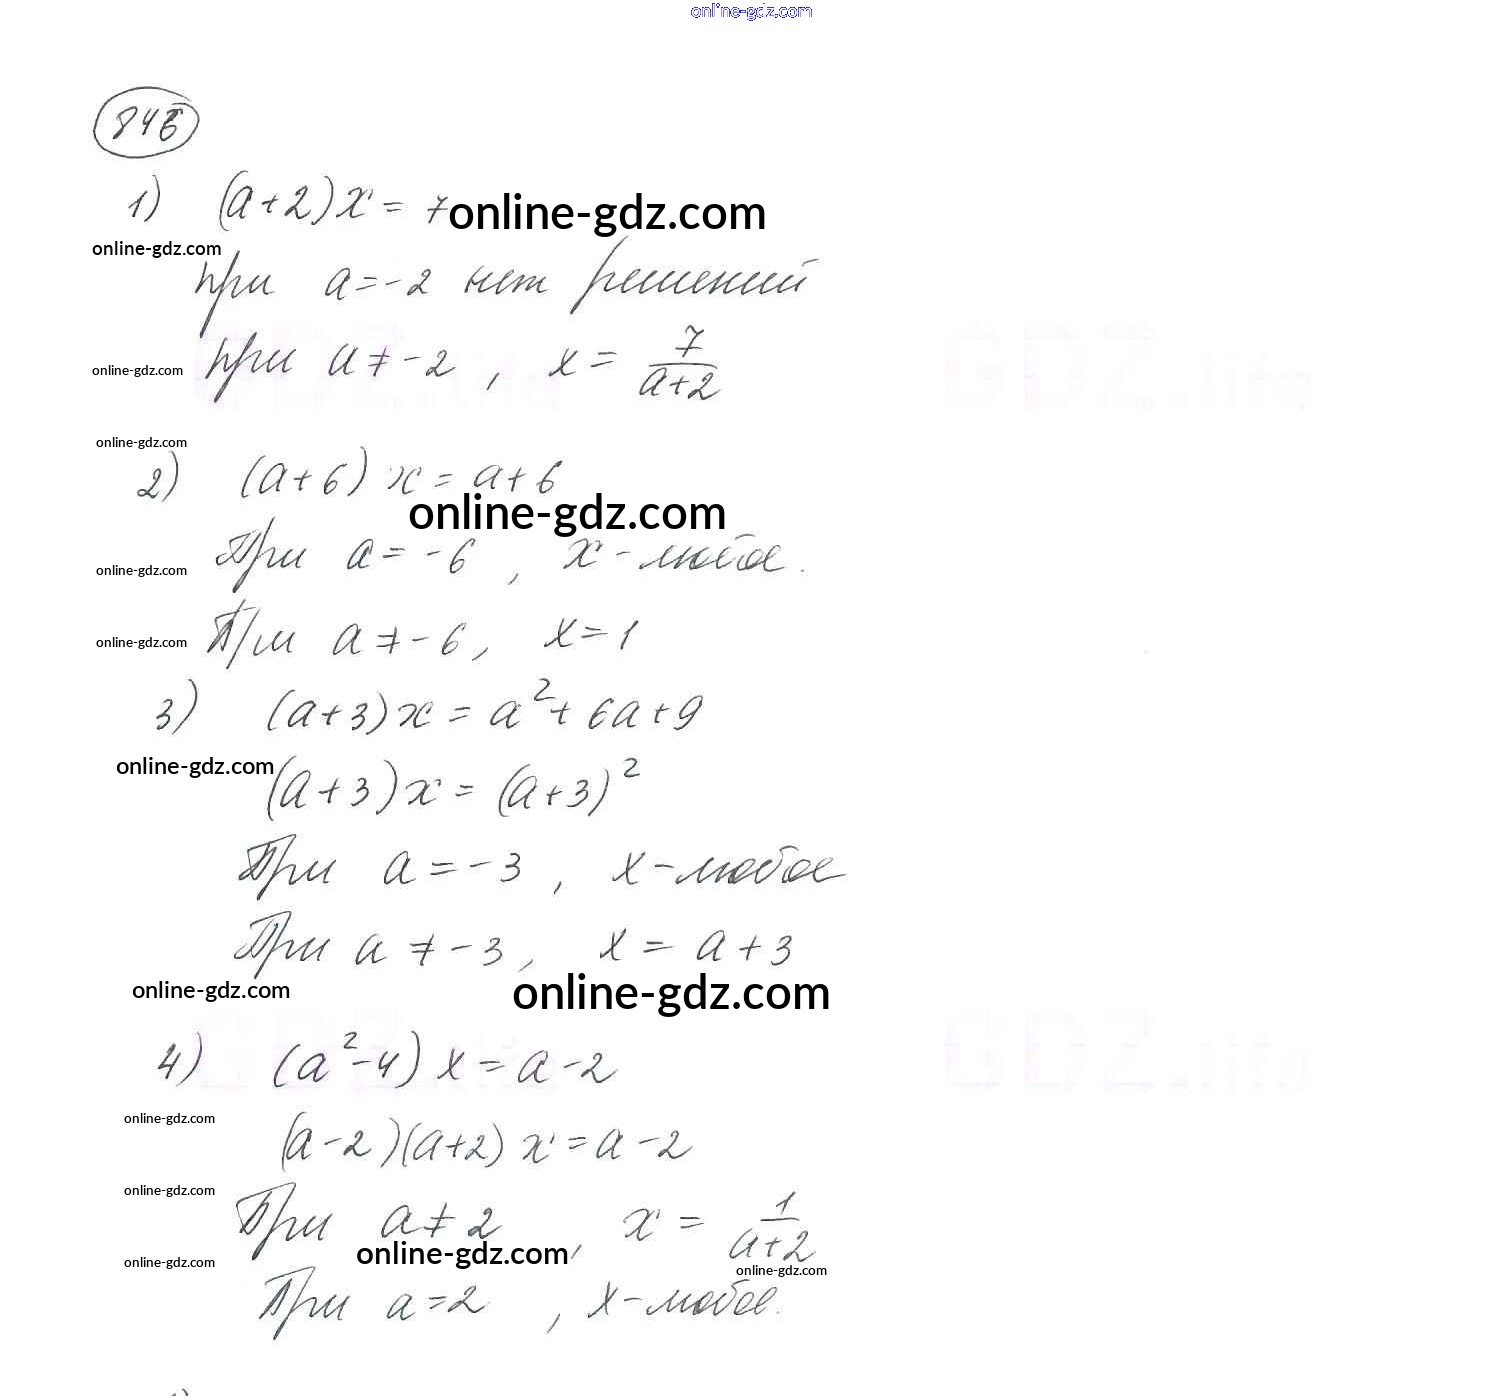 online-gdz.com
846
1) (a+2)x = 7 online-gdz.com
online-gdz.com
при a=-2 нет решений
online-gdz.com при a≠-2, x = 7/(a+2)
GDZ.life GDZ.life
online-gdz.com
2) (a+6)x = a+6
online-gdz.com
online-gdz.com При a=-6, x - любое.
online-gdz.com При a≠-6, x=1
3) (a+3)x = a²+6a+9
online-gdz.com (a+3)x = (a+3)²
При a=-3, x-любое
При a≠-3, x = a+3
online-gdz.com online-gdz.com
GDZ.life GDZ.life
4) (a²-4)x = a-2
online-gdz.com
(a-2)(a+2)x = a-2
online-gdz.com
При a≠2, x = 1/(a+2)
online-gdz.com
online-gdz.com online-gdz.com
При a=2, x-любое.